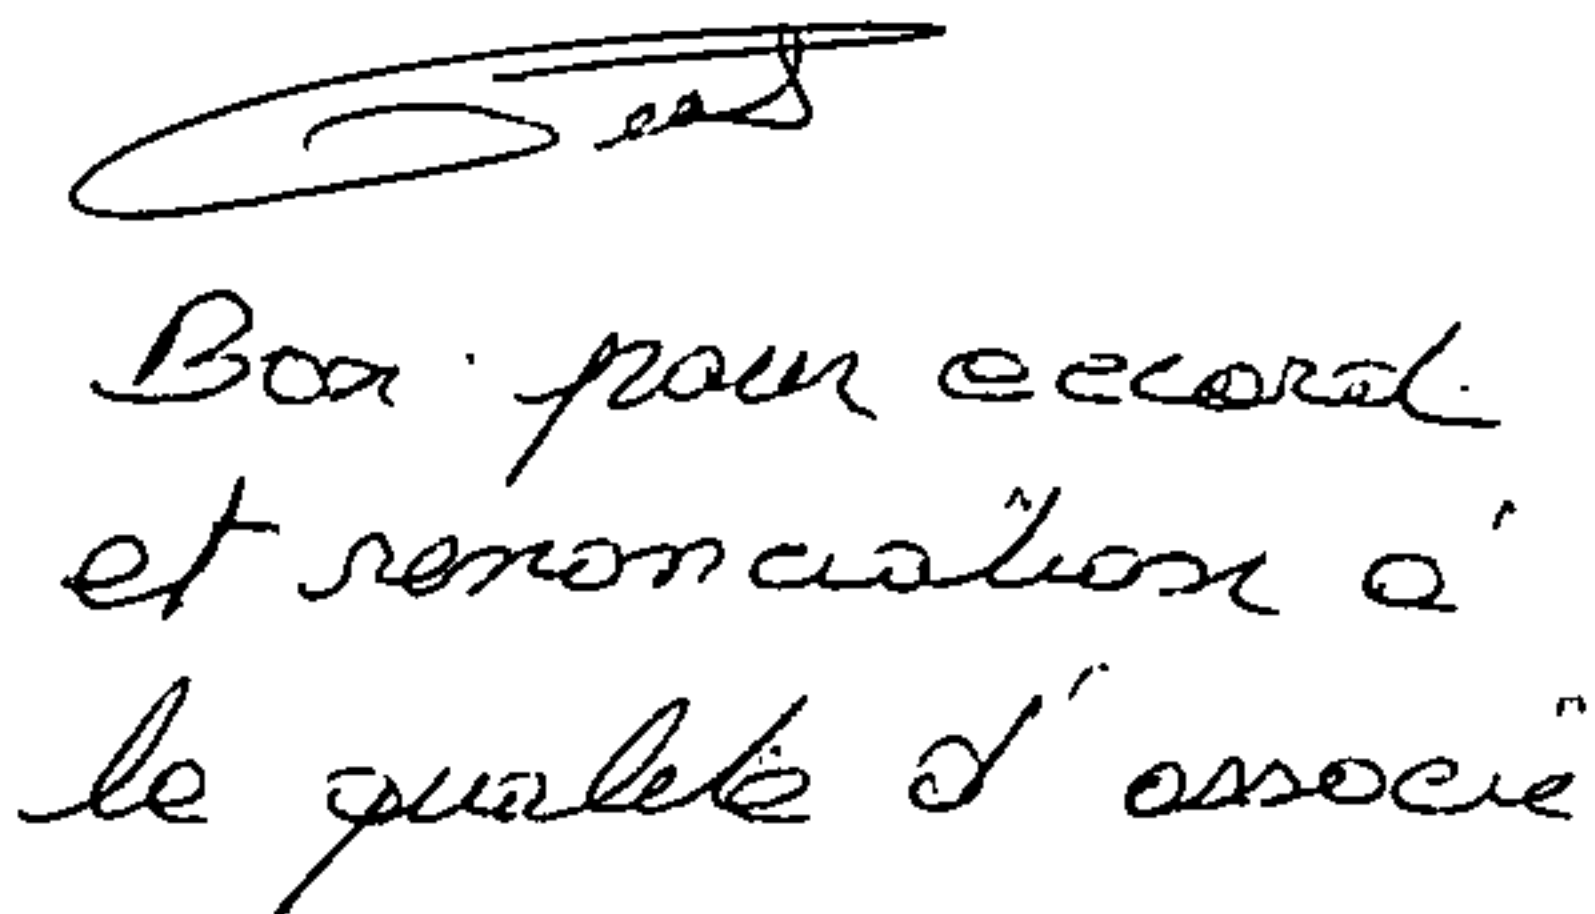 Bon pour accord
et renonciation à
la qualité d'associé